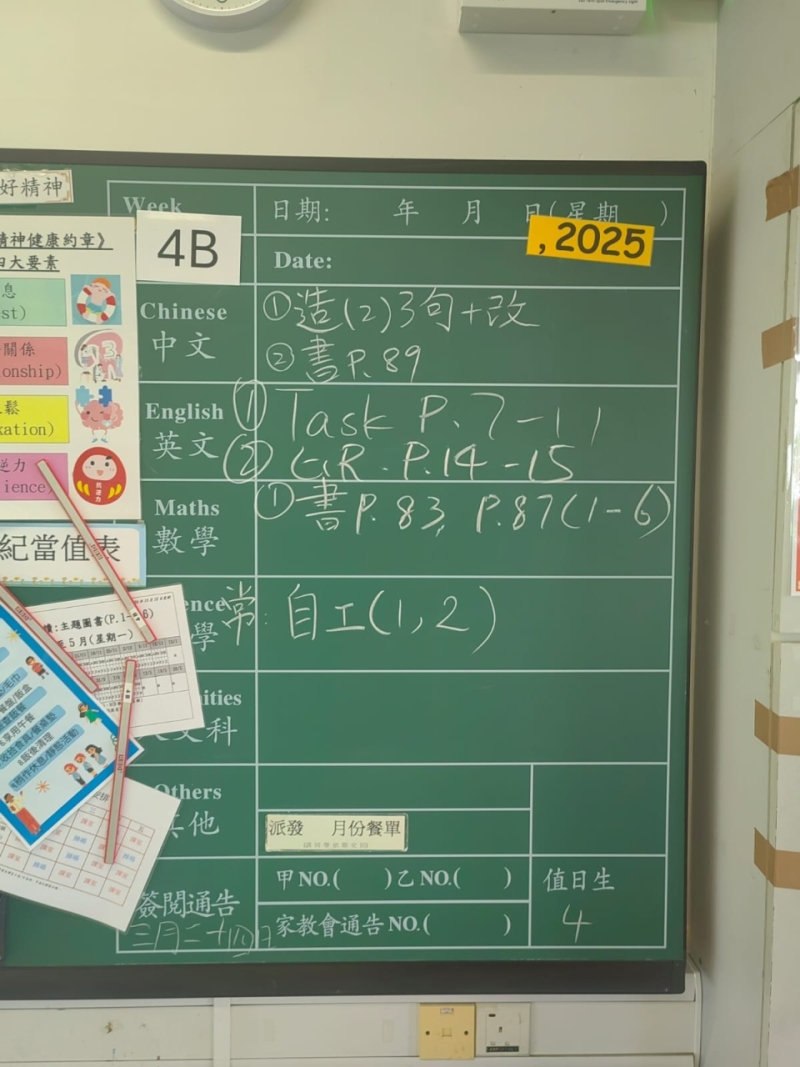 好精神
精神健康約章》
四大要素
息
st)
關係
onship)
鬆
xation)
逆力
ience)
紀當值表
:主題圖書(P.1-
5月(星期一)
Week
4B
日期: 年 月 日(星期 )
, 2025
Date:
Chinese
中文
①造(2)3句+改
②書P.89
English
英文
① Task P.7-11
② GR. P.14-15
Maths
數學
①書P.83, P.87(1-6)
ence
學
常:自工(1,2)
ities
文科
Others
其他
派發 月份餐單
簽閱通告
三月二十四日
甲NO.( )乙NO.( )
家教會通告NO.( )
值日生
4